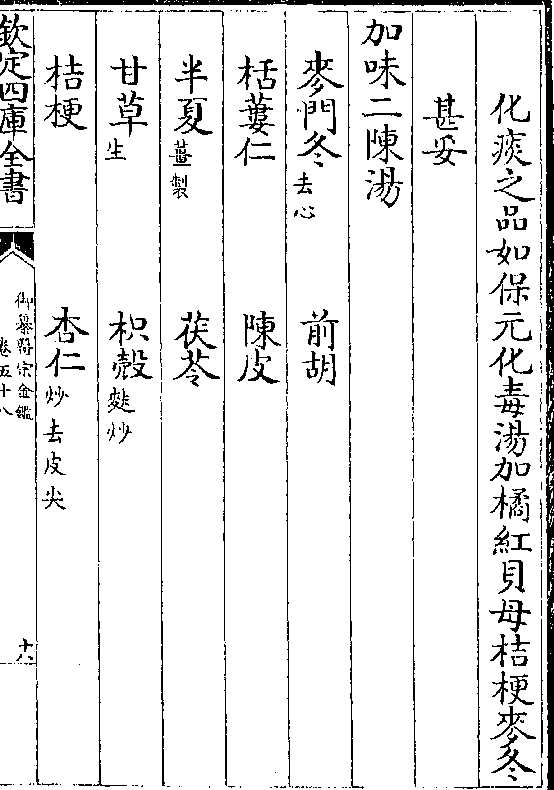 化痰之品如保元化毒湯加橘紅貝母桔梗麥冬
甚妥
加味二陳湯
麥門冬去心 前胡
栝蔞仁 陳皮
半夏薑製 茯苓
甘草生 枳殼麩炒
桔梗 杏仁炒去皮尖
欽定四庫全書 御纂醫宗金鑑 卷五十八 十六